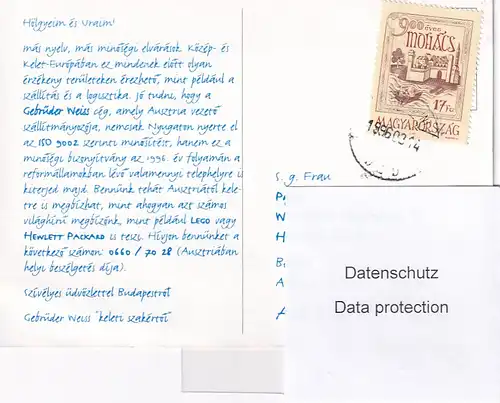 Hölgyeim és Uraim!
más nyelv, más minőségi elvárások. Közép- és
Kelet-Európában ez mindenek előtt olyan
érzékeny területeken érezhető, mint például a
szállítás és a logisztika. Jó tudni, hogy a
Gebrüder Weiss cég, amely Ausztria vezető
szállítmányozója, nemcsak Nyugaton nyerte el
az ISO 9002 szerinti minősítést, hanem ez a
minőségi bizonyítvány az 1996. év folyamán a
reformállamokban lévő valamennyi telephelyre is
kiterjed majd. Bennünk tehát Ausztriától kele-
tre is megbízhat, mint ahogyan azt számos
világhírű megbízónk, mint például LEGO vagy
HEWLETT PACKARD is teszi. Hívjon bennünket a
következő számon: 0660 / 70 28 (Ausztriában
helyi beszélgetés díja).
Szívélyes üdvözlettel Budapestről
Gebrüder Weiss "keleti szakértői"
900 éves
MOHÁCS
17 Ft
MAGYARORSZÁG
1996 02 14
S. g. Frau
P
W
H
B
A
A
Datenschutz
Data protection